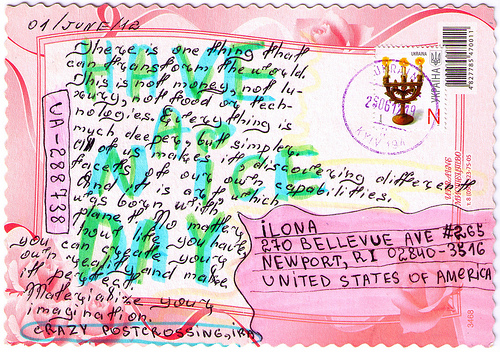 01/JUNE/12
There is one thing that
can transform the world.
This is not money, not lu-
xury, not food or tech-
nologies. Everything is
much deeper, but simpler.
All of us makes it discovering different
facets of our own capabilities.
And it is art which
was born with
planet. No matter
what life you have,
you can create your
own reality and make
it perfect.
Materialize your
imagination.
CRAZY POSTCROSSING, IRA
HAVE
A
NICE
DAY
UA-288738
УКРАЇНА
UKRAINE
Z
4827785470011
3468
iLONA
270 BELLEVUE AVE #265
NEWPORT, RI 02840-3516
UNITED STATES OF AMERICA